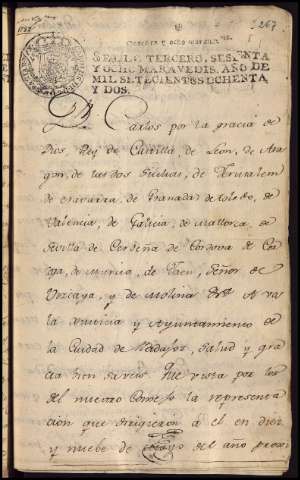 267
1782
SELLO TERCERO, SESENTA
Y OCHO MARAVEDIS, AÑO DE
MIL SETECIENTOS OCHENTA
Y DOS.
Dn. Carlos por la gracia de
Dios, Rey de Castilla, de Leon, de Ara
gon, de las dos Sicilias, de Jerusalem
de Navarra, de Granada de Toledo, de
Valencia, de Galicia, de Mallorca, de
Sevilla de Cerdeña de Cordova de Cor
zega, de Murcia, de Jaen, Señor de
Vizcaya, y de Molina &ª A va
la Justicia y Ayuntamiento de
la Ciudad de Badajoz, Salud y gra
cia saveis fue vista por los
del nuestro Consejo la represen
cion que dirigieron a él en diez
y nuebe de Mayo del año proxi